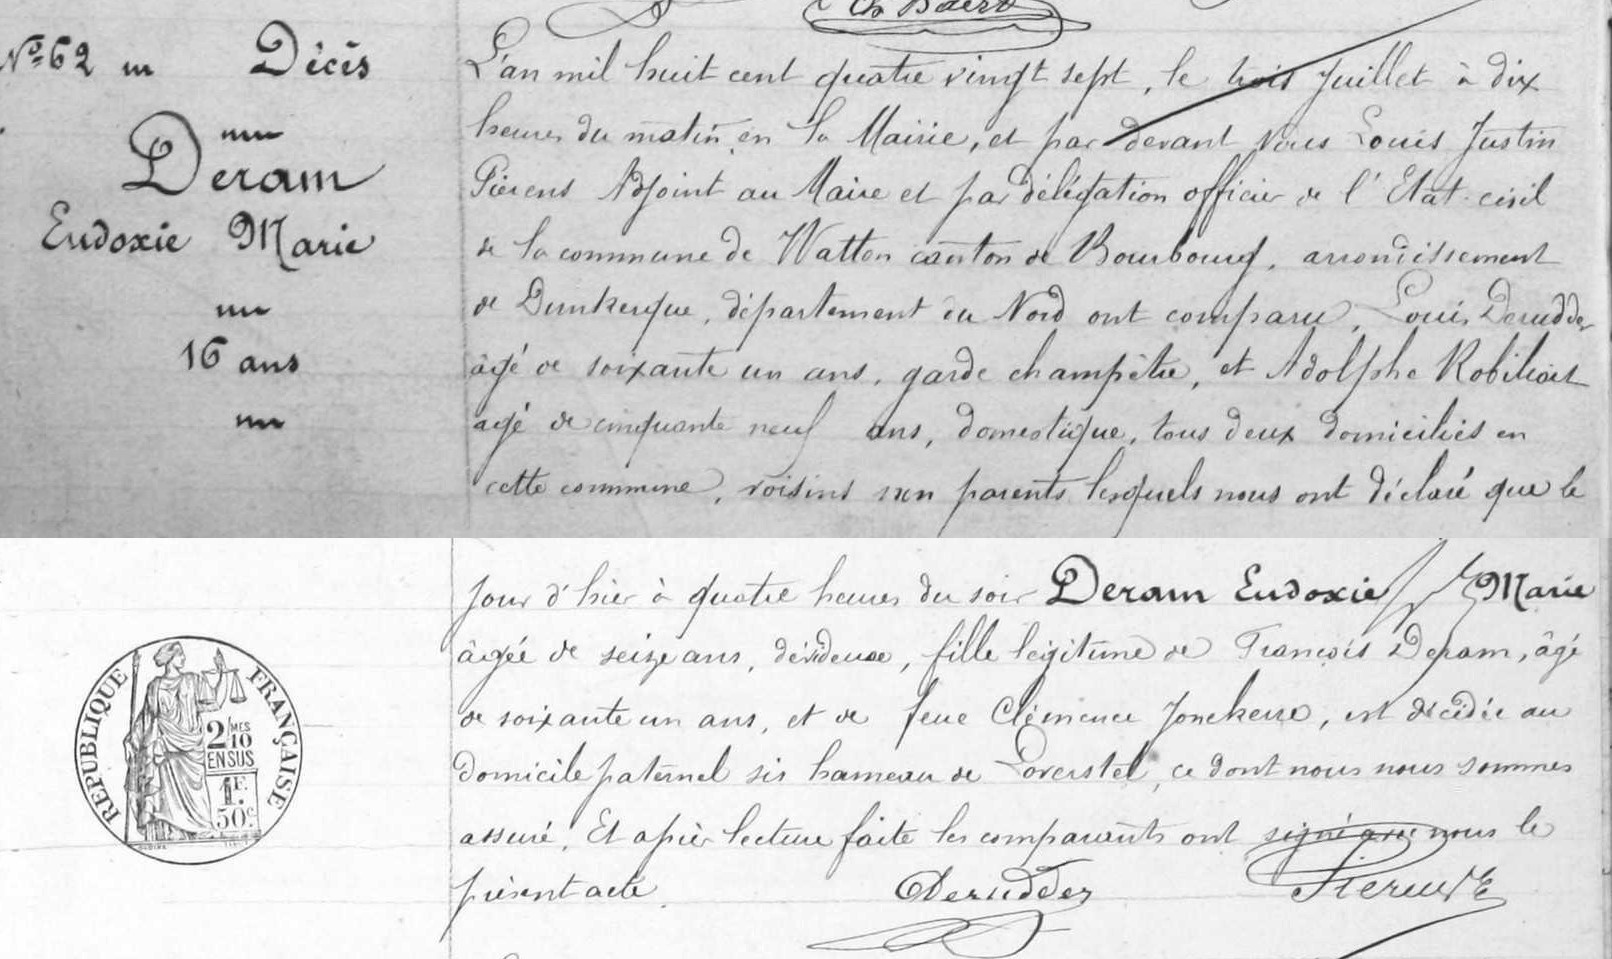 Ch Baert
Nº 62
Décès
Deram
Eudoxie Marie
16 ans
L'an mil huit cent quatre vingt sept, le trois Juillet à dix
heures du matin, en la Mairie, et par devant Nous Louis Justin
Pierens Adjoint au Maire et par délégation officier de l'Etat-civil
de la commune de Watten canton de Bourbourg, arrondissement
de Dunkerque, département du Nord ont comparu, Louis Derudder
âgé de soixante un ans, garde champêtre, et Adolphe Robiliart
agé de cinquante neuf ans, domestique, tous deux domiciliés en
cette commune, voisins non parents lesquels nous ont déclaré que le
jour d'hier à quatre heures du soir Deram Eudoxie Marie
âgée de seize ans, dévideuse, fille légitime de François Deram, âgé
de soixante un ans, et de feue Clémence Jonckerre, est décédée au
domicile paternel sis hameau de Loverstel, ce dont nous nous sommes
assuré, Et après lecture faite les comparants ont signé avec nous le
présent acte.
Derudder
Pierens
RÉPUBLIQUE FRANÇAISE
2/10 MES
EN SUS
1F.
50C